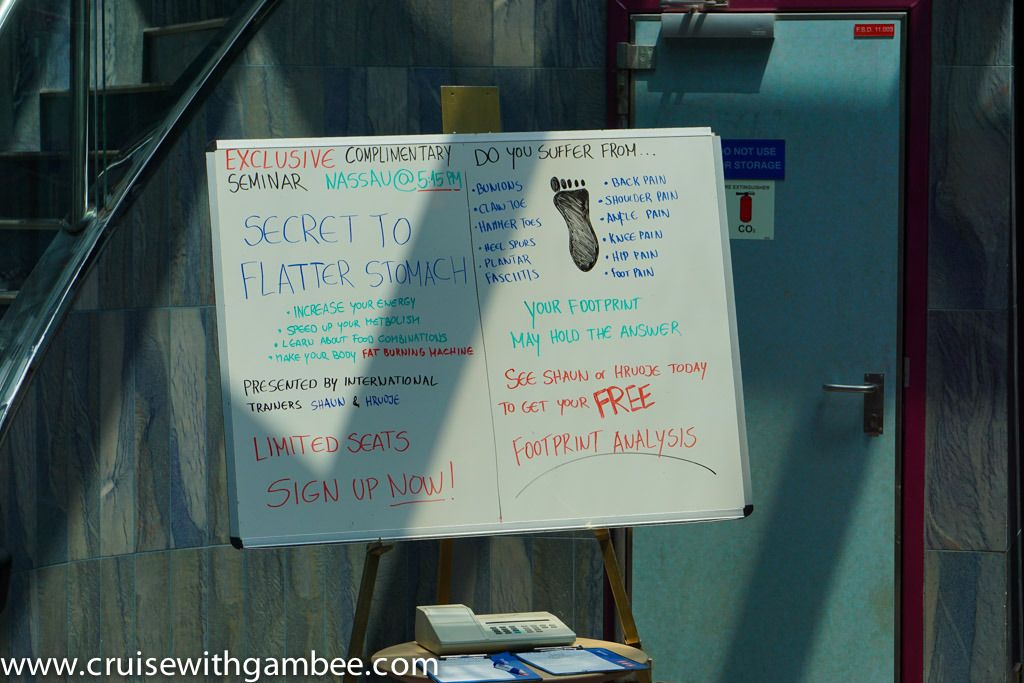 EXCLUSIVE COMPLIMENTARY
SEMINAR NASSAU @ 5:15 PM
SECRET TO
FLATTER STOMACH
• INCREASE YOUR ENERGY
• SPEED UP YOUR METBOLISM
• LEARN ABOUT FOOD COMBINATIONS
• MAKE YOUR BODY FAT BURNING MACHINE
PRESENTED BY INTERNATIONAL
TRAINERS SHAUN & HRVOJE
LIMITED SEATS
SIGN UP NOW!
DO YOU SUFFER FROM...
• BUNIONS
• CLAW TOE
• HAMMER TOES
• HEEL SPURS
• PLANTAR
FASCIITIS
• BACK PAIN
• SHOULDER PAIN
• ANKLE PAIN
• KNEE PAIN
• HIP PAIN
• FOOT PAIN
YOUR FOOTPRINT
MAY HOLD THE ANSWER
SEE SHAUN or HRVOJE TODAY
TO GET YOUR FREE
FOOTPRINT ANALYSIS
F.S.D. 11.003
DO NOT USE
FOR STORAGE
FIRE EXTINGUISHER
CO₂
www.cruisewithgambee.com